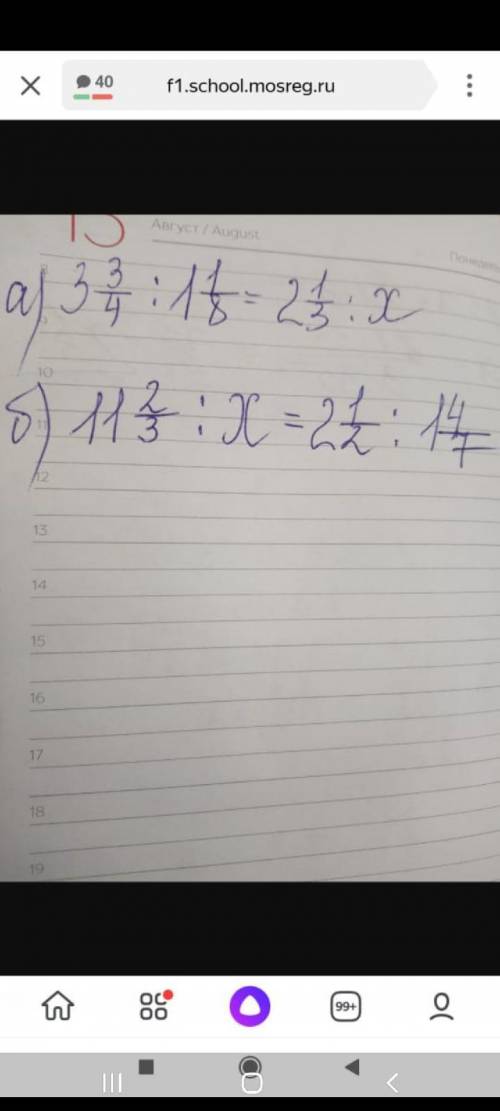 40 f1.school.mosreg.ru
13 Август / August
а) 3 3/4 : 1 1/8 = 2 1/3 : x
10
б) 11 2/3 : x = 2 1/2 : 1 4/7
11
12
13
14
15
16
17
18
19
99+